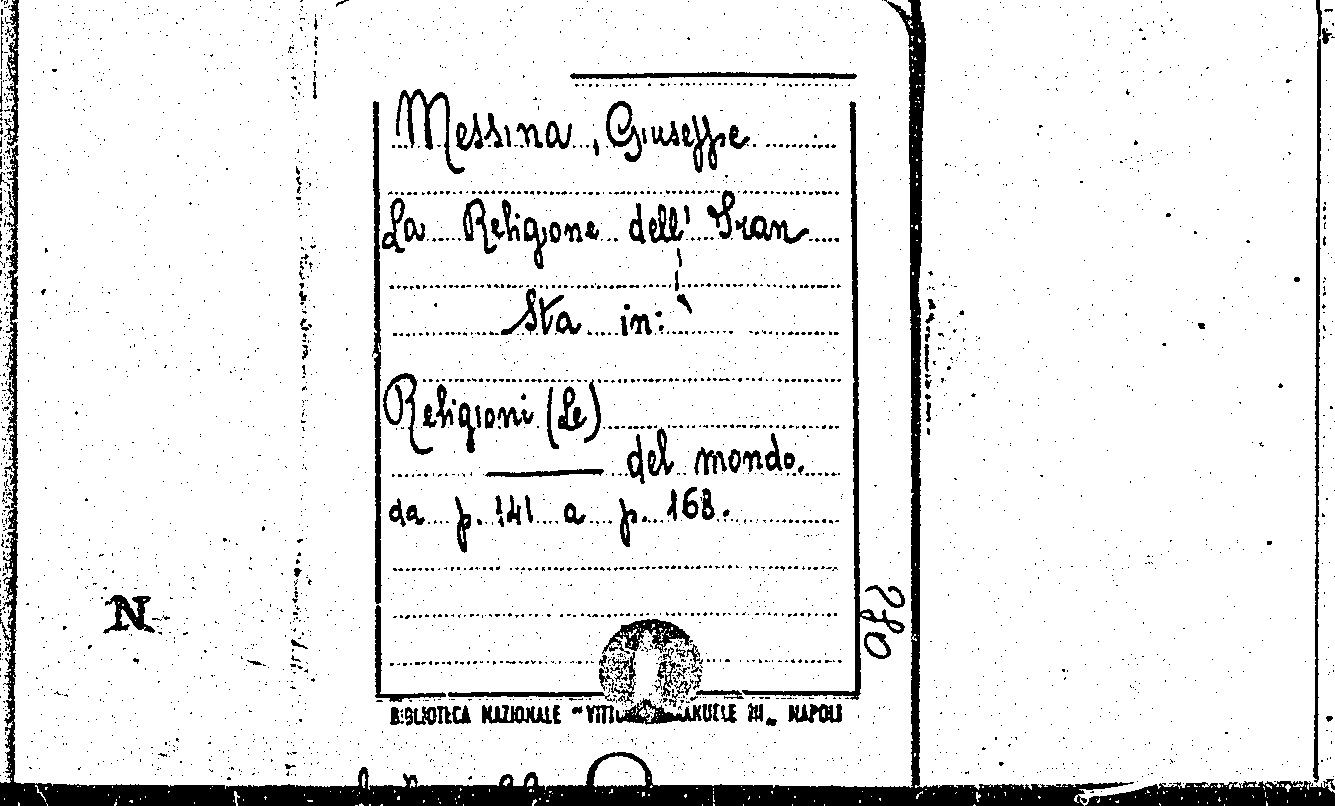 Messina, Giuseppe
La Religione dell' Iran
Sta in:
Religioni (Le)
del mondo.
da p. 141 a p. 168.
N
BIBLIOTECA NAZIONALE "VITTORIO EMANUELE III" NAPOLI